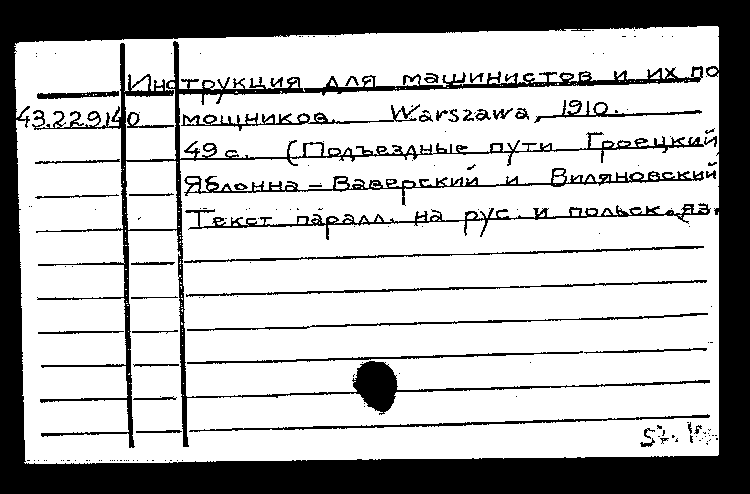 Инструкция для машинистов и их по
43.229.140 мощников. Warszawa, 1910.
49 с. (Подъездные пути Гроецкий
Яблонна-Ваверский и Виляновский
Текст паралл. на рус. и польск. яз.